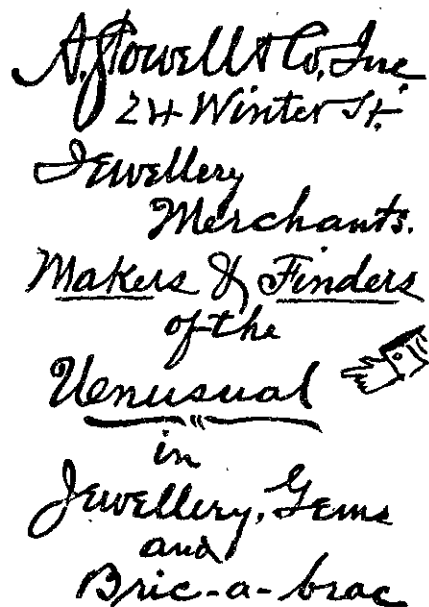 A. Stowell & Co., Inc
24 Winter St.
Jewellery
Merchants.
Makers & Finders
of the
Unusual
in
Jewellery, Gems
and
Bric-a-brac